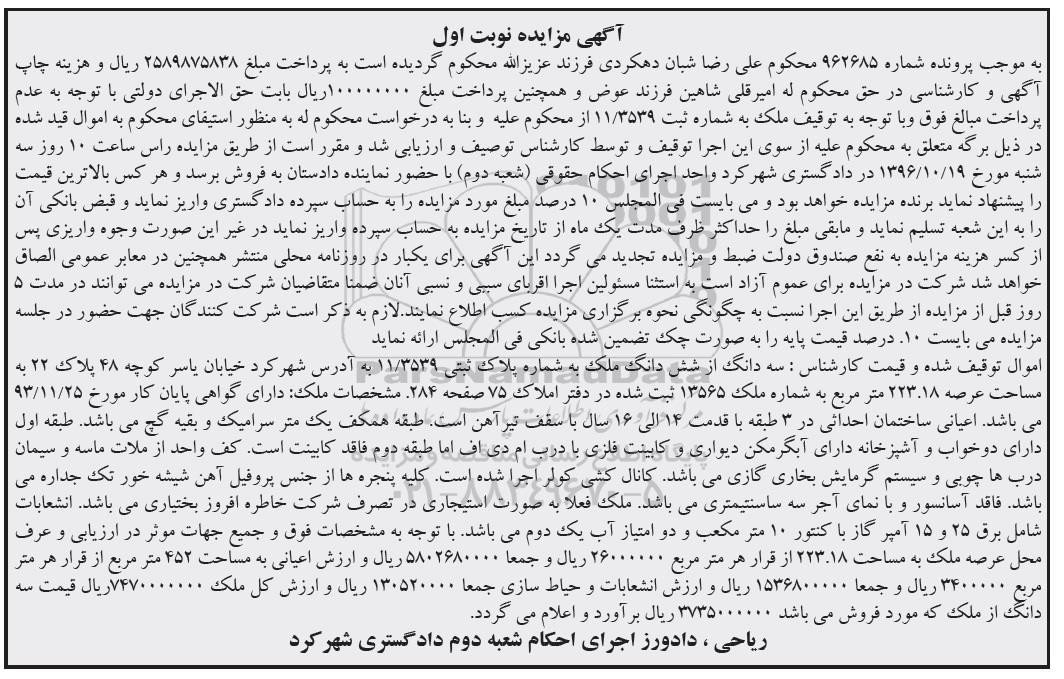 آگهی مزایده نوبت اول
به موجب پرونده شماره ۹۶۲۶۸۵ محکوم علی رضا شبان دهکردی فرزند عزیزالله محکوم گردیده است به پرداخت مبلغ ۲۵۸۹۸۷۵۸۳۸ ریال و هزینه چاپ
آگهی و کارشناسی در حق محکوم له امیرقلی شاهین فرزند عوض و همچنین پرداخت مبلغ ۱۰۰۰۰۰۰۰۰ریال بابت حق الاجرای دولتی با توجه به عدم
پرداخت مبالغ فوق وبا توجه به توقیف ملک به شماره ثبت ۱۱/۳۵۳۹ از محکوم علیه و بنا به درخواست محکوم له به منظور استیفای محکوم به اموال قید شده
در ذیل برگه متعلق به محکوم علیه از سوی این اجرا توقیف و توسط کارشناس توصیف و ارزیابی شد و مقرر است از طریق مزایده راس ساعت ۱۰ روز سه
شنبه مورخ ۱۳۹۶/۱۰/۱۹ در دادگستری شهرکرد واحد اجرای احکام حقوقی (شعبه دوم) با حضور نماینده دادستان به فروش برسد و هر کس بالاترین قیمت
را پیشنهاد نماید برنده مزایده خواهد بود و می بایست فی المجلس ۱۰ درصد مبلغ مورد مزایده را به حساب سپرده دادگستری واریز نماید و قبض بانکی آن
را به این شعبه تسلیم نماید و مابقی مبلغ را حداکثر ظرف مدت یک ماه از تاریخ مزایده به حساب سپرده واریز نماید در غیر این صورت وجوه واریزی پس
از کسر هزینه مزایده به نفع صندوق دولت ضبط و مزایده تجدید می گردد این آگهی برای یکبار در روزنامه محلی منتشر همچنین در معابر عمومی الصاق
خواهد شد شرکت در مزایده برای عموم آزاد است به استثنا مسئولین اجرا اقربای سببی و نسبی آنان ضمنا متقاضیان شرکت در مزایده می توانند در مدت ۵
روز قبل از مزایده از طریق این اجرا نسبت به چگونگی نحوه برگزاری مزایده کسب اطلاع نمایند.لازم به ذکر است شرکت کنندگان جهت حضور در جلسه
مزایده می بایست ۱۰. درصد قیمت پایه را به صورت چک تضمین شده بانکی فی المجلس ارائه نماید
اموال توقیف شده و قیمت کارشناس : سه دانگ از شش دانگ ملک به شماره پلاک ثبتی ۱۱/۳۵۳۹ به آدرس شهرکرد خیابان یاسر کوچه ۴۸ پلاک ۲۲ به
مساحت عرصه ۲۲۳.۱۸ متر مربع به شماره ملک ۱۳۵۶۵ ثبت شده در دفتر املاک ۷۵ صفحه ۲۸۴. مشخصات ملک: دارای گواهی پایان کار مورخ ۹۳/۱۱/۲۵
می باشد. اعیانی ساختمان احداثی در ۳ طبقه با قدمت ۱۴ الی ۱۶ سال با سقف تیرآهن است. طبقه همکف یک متر سرامیک و بقیه گچ می باشد. طبقه اول
دارای دوخواب و آشپزخانه دارای آبگرمکن دیواری و کابینت فلزی با درب ام دی اف اما طبقه دوم فاقد کابینت است. کف واحد از ملات ماسه و سیمان
درب ها چوبی و سیستم گرمایش بخاری گازی می باشد. کانال کشی کولر اجرا شده است. کلیه پنجره ها از جنس پروفیل آهن شیشه خور تک جداره می
باشد. فاقد آسانسور و با نمای آجر سه سانتیمتری می باشد. ملک فعلا به صورت استیجاری در تصرف شرکت خاطره افروز بختیاری می باشد. انشعابات
شامل برق ۲۵ و ۱۵ آمپر گاز با کنتور ۱۰ متر مکعب و دو امتیاز آب یک دوم می باشد. با توجه به مشخصات فوق و جمیع جهات موثر در ارزیابی و عرف
محل عرصه ملک به مساحت ۲۲۳.۱۸ از قرار هر متر مربع ۲۶۰۰۰۰۰۰ ریال و جمعا ۵۸۰۲۶۸۰۰۰۰ ریال و ارزش اعیانی به مساحت ۴۵۲ متر مربع از قرار هر متر
مربع ۳۴۰۰۰۰۰ ریال و جمعا ۱۵۳۶۸۰۰۰۰۰ ریال و ارزش انشعابات و حیاط سازی جمعا ۱۳۰۵۲۰۰۰۰ ریال و ارزش کل ملک ۷۴۷۰۰۰۰۰۰۰ریال قیمت سه
دانگ از ملک که مورد فروش می باشد ۳۷۳۵۰۰۰۰۰۰ ریال برآورد و اعلام می گردد.
ریاحی ، دادورز اجرای احکام شعبه دوم دادگستری شهرکرد
ParsNamadData
۰۲۱-۸۸۳۴۹۶۷۰-۵